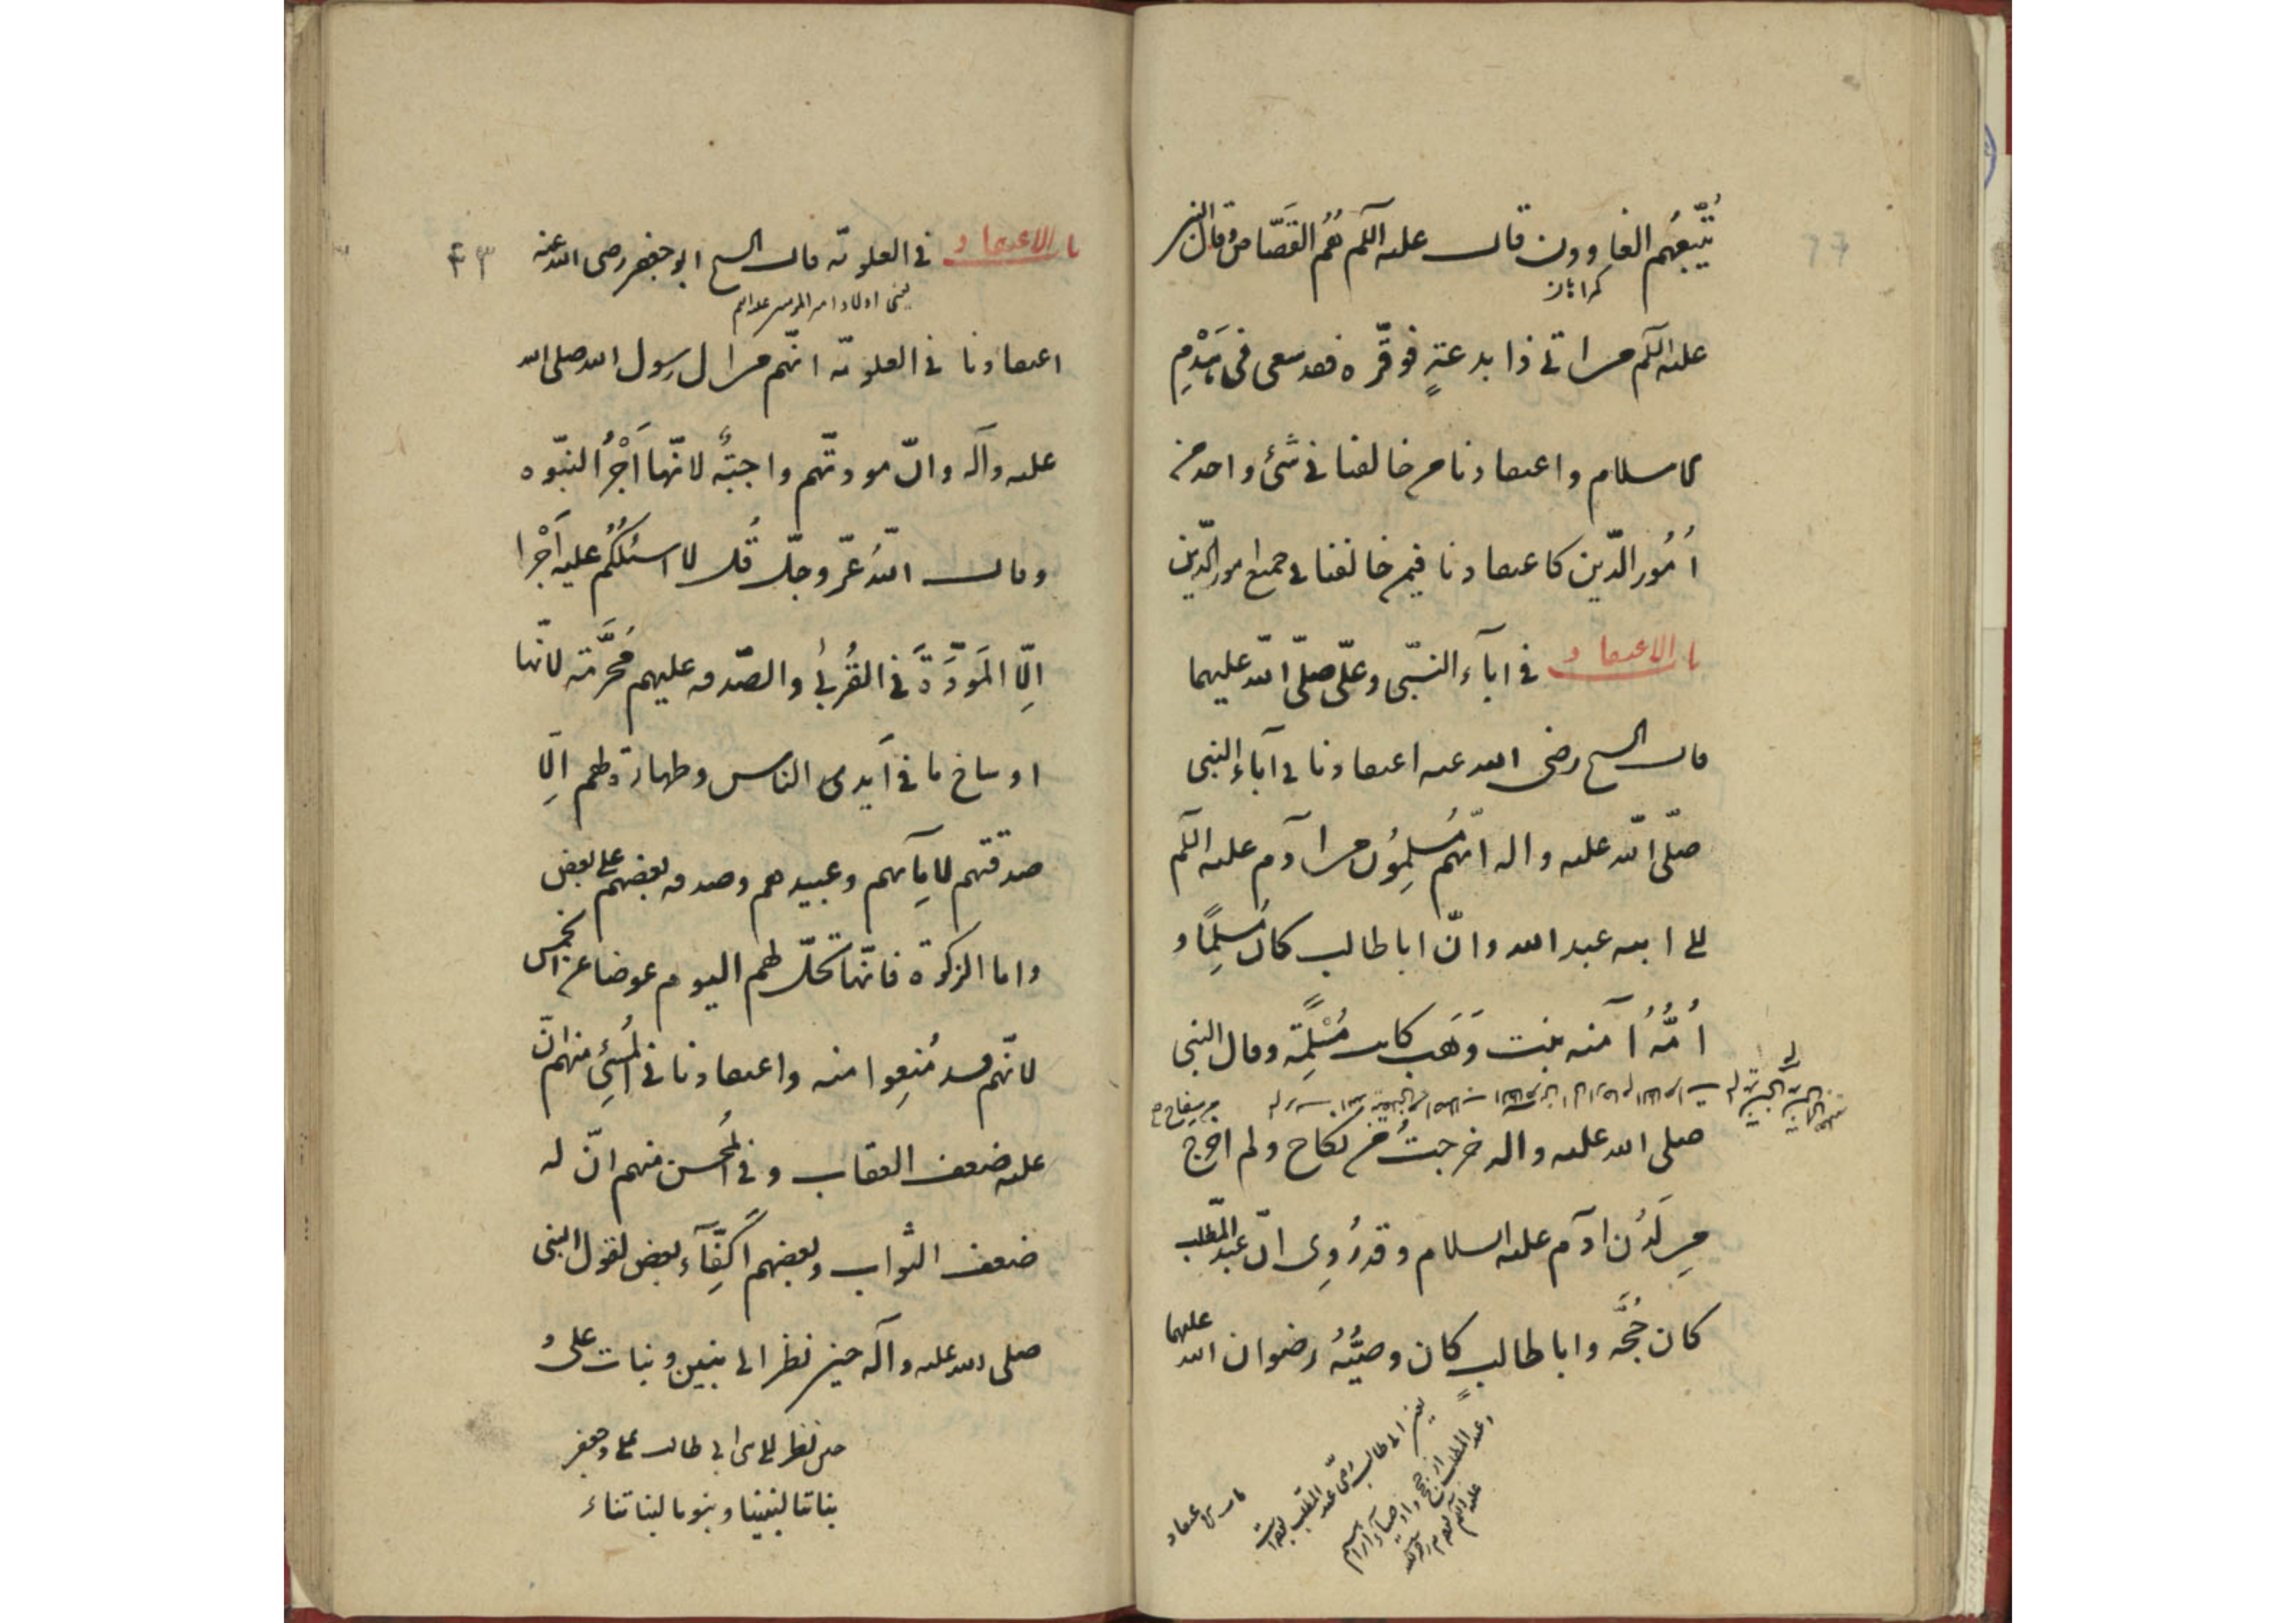 يتّبعُهم الغاوون قال علیه السلم هُم القَصّاص وقال النبی
كمراهان
علیه السلم من اتی ذا بدعةٍ فوقّره فقد سعی فی هَدْمِ
الاسلام و اعتقادنا من خالفنا فی شیء واحد من
اُمُور الدّین کاعتقادنا فیمن خالفنا فی جمیع امور الدّین
باب الاعتقاد فی اٰباء النبّی و علیّ صلّی اللّه علیهما
قال الشیخ رضی الله عنه اعتقادنا فی آباء النبی
صلّی اللّه علیه واله انّهم مُسلِمُون من آدم علیه السلم
الی ابیه عبد الله وانّ ابا طالب کان مُسلِمًا و
اُمُّهُ آمنه بنت وَهَب کانت مُسْلِمَة وقال النبی
من سفاح
صلی الله علیه واله خرجتُ من نکاح ولم اخرج
مِن لَدُن ادٓم علیه السلام وقد رُوِی انّ عبد المّطلب
کان حُجَّه وابا طالب کان وصیُّهُ رضوان الله علیهما
باب الاعتقاد فی العلویّه قال الشیخ ابو جعفر رضی الله عنه
یعنی اولاد امیر المومنین علیه السلم
اعتقادنا فی العلویّه انّهم من ال رسول الله صلی الله
علیه وآله وانّ مودتّهم واجبَةٌ لانّها اَجْرُ النبّوه
وقال اللّهُ عزّ وجلّ قُل لا اسئلُکُم علیه اَجْرا
اِلّا المَوَدَّةَ فی القُربیٰ والصّدقه علیهم مُحَرَّمَة لانّها
اوساخ ما فی اَیدی الناس وطهارة لهم اِلّا
صدقتهم لاِمائهم وعبیدهم وصدقه بعضهم علی بعض
واما الزکوة فانّها تَحلّ لهم الیوم عوضا عن الخمس
لانّهم قد مُنِعوا منه واعتقادنا فی المُسیءِ منهم انّ
علیه ضعف العقاب و فی المُحسن منهم انّ له
ضعف الثواب وبعضهم اَکفّاٰء بعض لقول النبی
صلی الله علیه وآله حین نظر الی بنین وبنات علی و
حین نظر الی بنی ابی طالب علی و جعفر
بناتنا لبنینا و بنونا لبناتنا